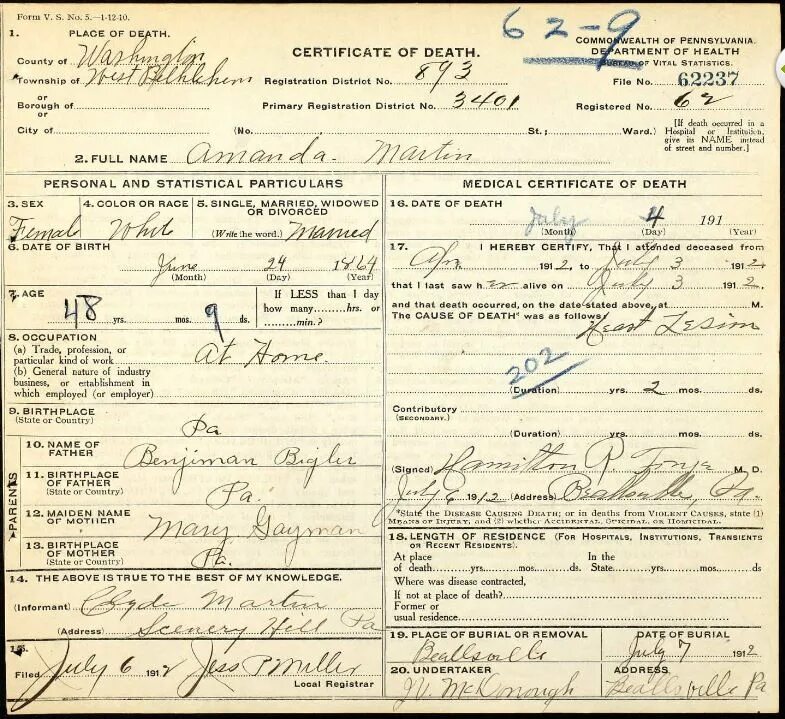 Form V. S. No. 5.—1-12-10.
62-9
1. PLACE OF DEATH.
County of Washington
Township of West Bethlehem
or
Borough of
or
City of (No. St.; Ward.)
CERTIFICATE OF DEATH.
Registration District No. 893
Primary Registration District No. 3401
COMMONWEALTH OF PENNSYLVANIA.
DEPARTMENT OF HEALTH
BUREAU OF VITAL STATISTICS.
File No. 62237
Registered No. 62
[If death occurred in a
Hospital or Institution,
give its NAME instead
of street and number.]
2. FULL NAME Amanda Martin
PERSONAL AND STATISTICAL PARTICULARS
3. SEX
Female
4. COLOR OR RACE
White
5. SINGLE, MARRIED, WIDOWED
OR DIVORCED
(Write the word.) Married
6. DATE OF BIRTH
June 24 1864
(Month) (Day) (Year)
7. AGE
48 yrs. mos. 9 ds.
If LESS than 1 day
how many hrs. or
min.?
8. OCCUPATION
(a) Trade, profession, or
particular kind of work At Home
(b) General nature of industry
business, or establishment in
which employed (or employer)
9. BIRTHPLACE
(State or Country) Pa
PARENTS
10. NAME OF
FATHER Benjiman Bigler
11. BIRTHPLACE
OF FATHER
(State or Country) Pa.
12. MAIDEN NAME
OF MOTHER Mary Gayman
13. BIRTHPLACE
OF MOTHER
(State or Country) Pa.
14. THE ABOVE IS TRUE TO THE BEST OF MY KNOWLEDGE.
(Informant) Clyde Martin
(Address) Scenery Hill Pa
15.
Filed July 6 1912 Jess P Miller
Local Registrar
MEDICAL CERTIFICATE OF DEATH
16. DATE OF DEATH
July 4 191
(Month) (Day) (Year)
17. I HEREBY CERTIFY, That I attended deceased from
Apr 1912, to July 3 1912,
that I last saw her alive on July 3 1912
and that death occurred, on the date stated above, at M.
The CAUSE OF DEATH* was as follows:
Heart Lesion
202
(Duration) yrs. 2 mos. ds.
Contributory
(SECONDARY.)
(Duration) yrs. mos. ds.
(Signed) Hamilton R M. D.
July 6 1912 (Address) Beallsville, Pa.
*State the DISEASE CAUSING DEATH; or in deaths from VIOLENT CAUSES, state (1)
MEANS OF INJURY, and (2) whether ACCIDENTAL, SUICIDAL, OR HOMICIDAL.
18. LENGTH OF RESIDENCE (FOR HOSPITALS, INSTITUTIONS, TRANSIENTS
OR RECENT RESIDENTS).
At place In the
of death yrs. mos. ds State yrs. mos. ds
Where was disease contracted,
If not at place of death?
Former or
usual residence
19. PLACE OF BURIAL OR REMOVAL
Beallsville
DATE OF BURIAL
July 7 1912
20. UNDERTAKER
J.V. McDonough
ADDRESS
Beallsville Pa